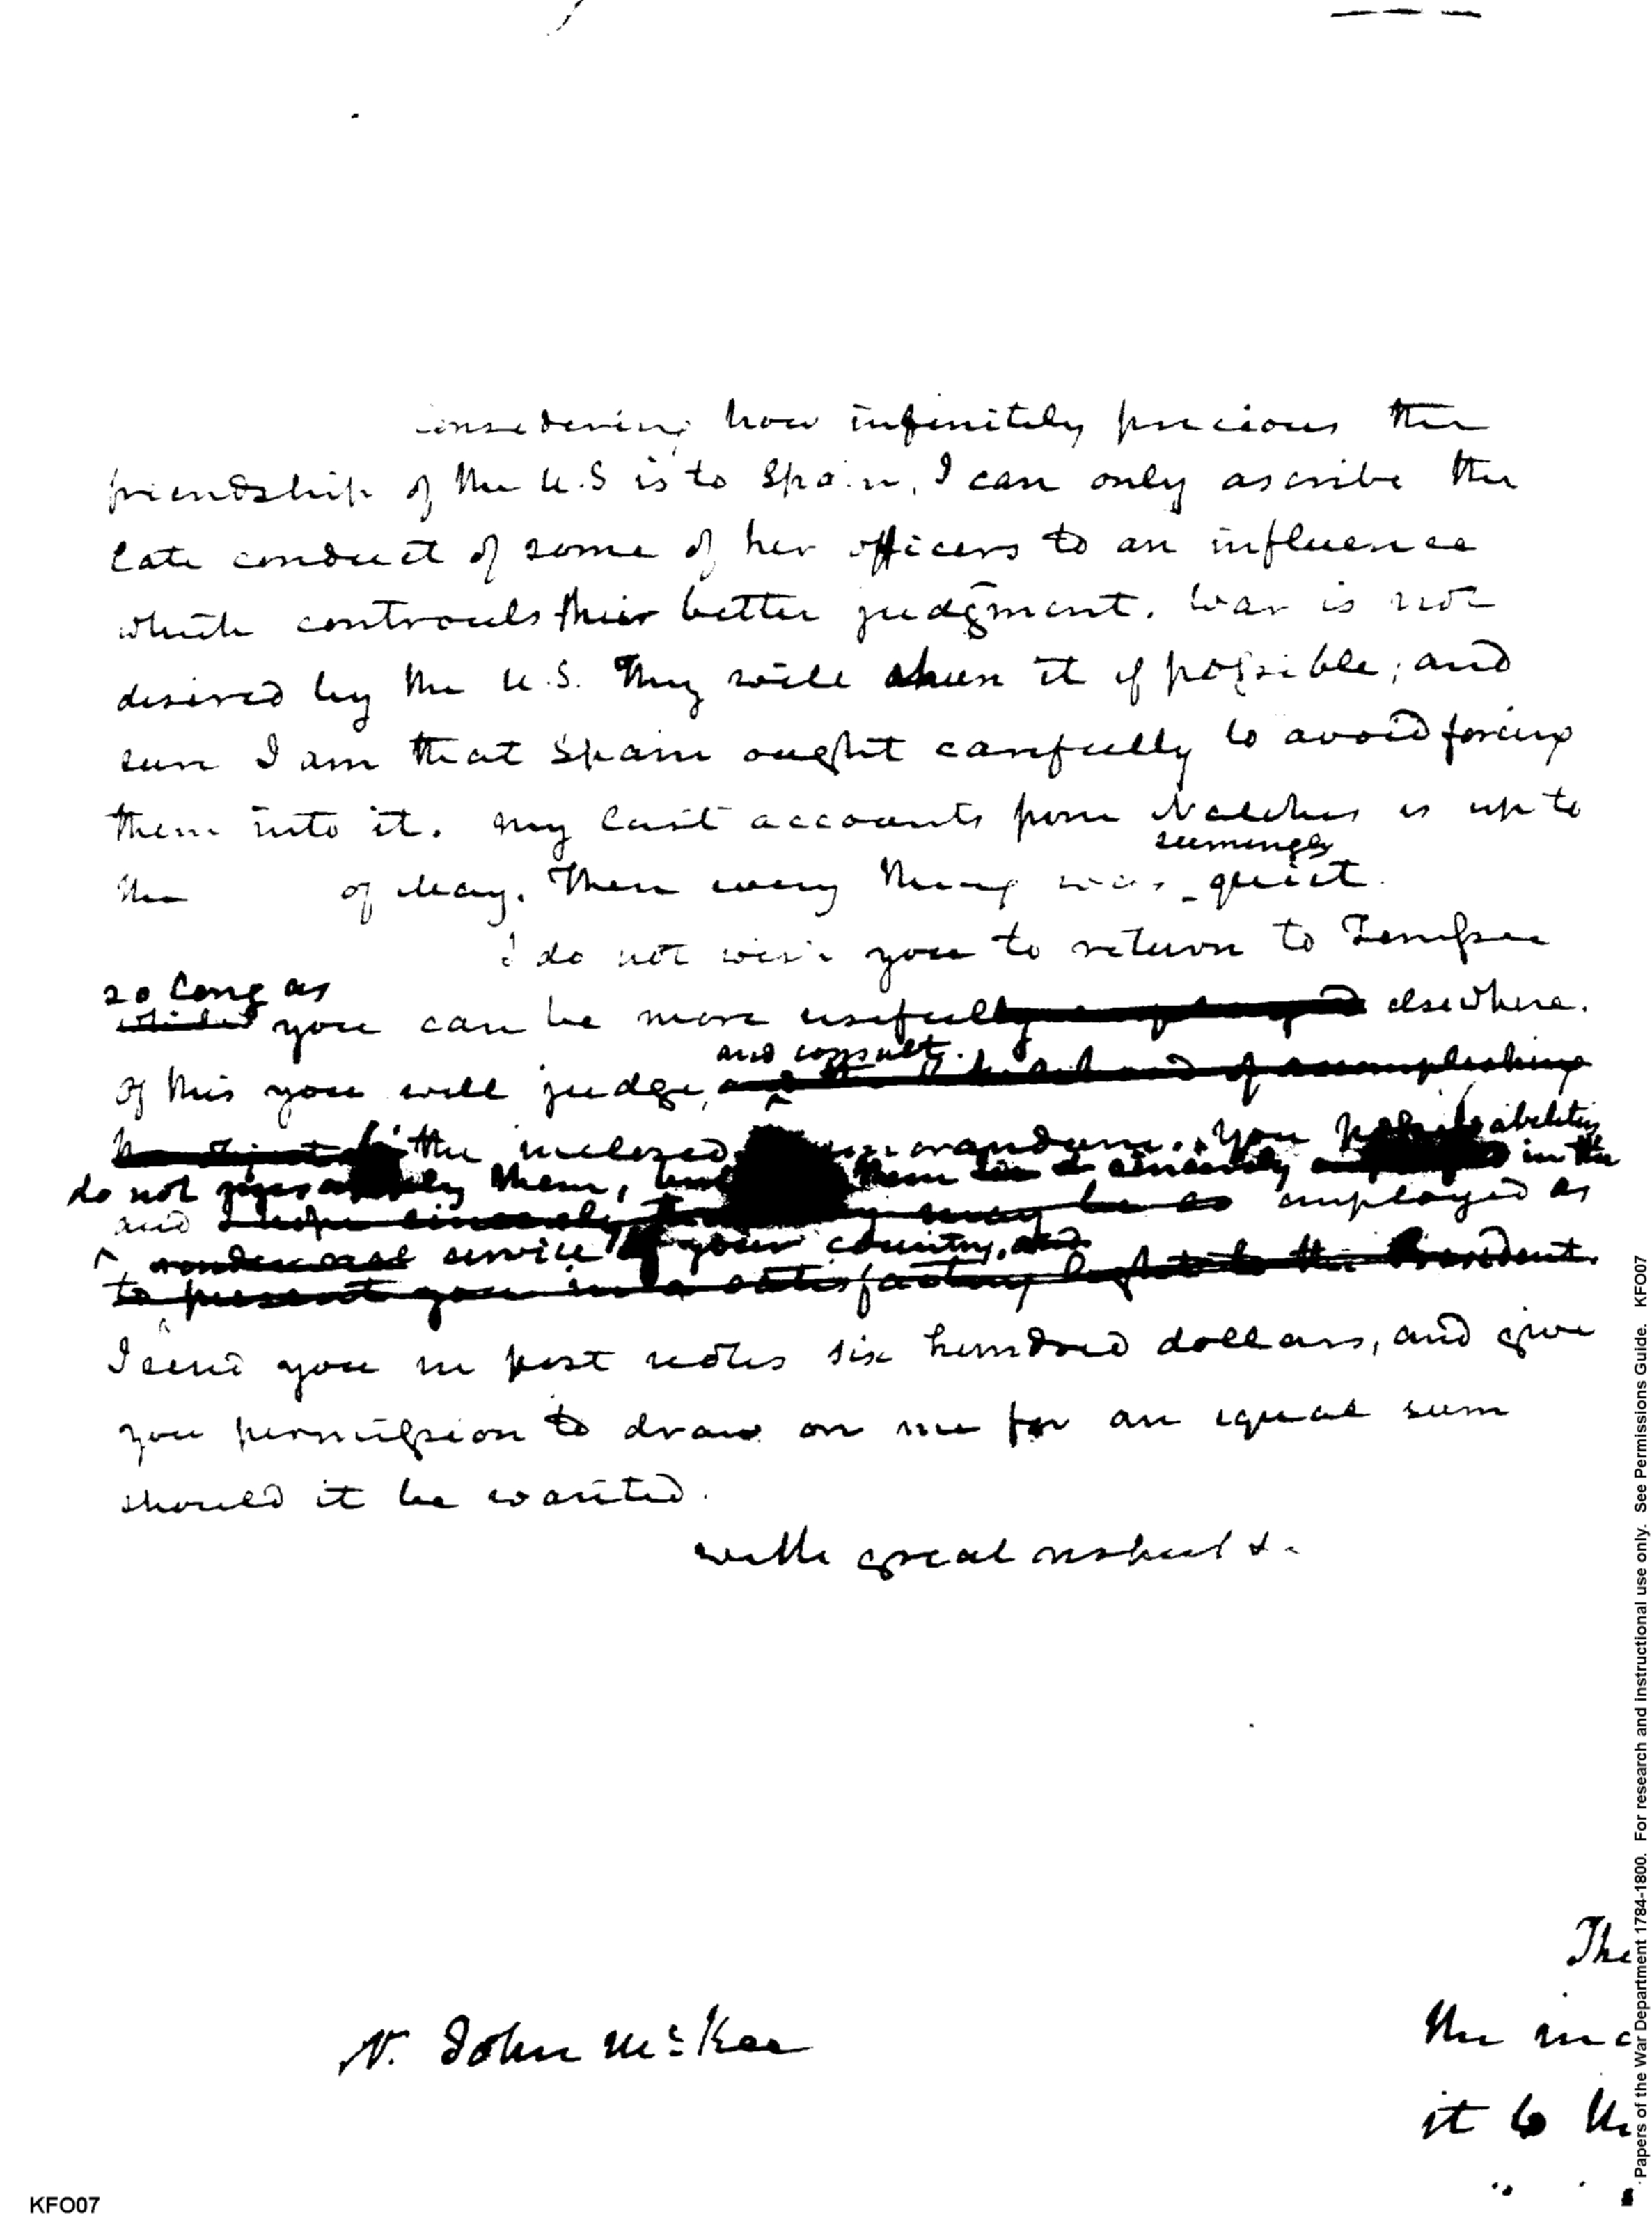 considering how infinitely precious the
friendship of the U.S is to Spain, I can only ascribe the
late conduct of some of her officers to an influence
which controuls their better judgment. War is not
desired by the U.S. They will shun it if possible; and
sure I am that Spain ought carefully to avoid forcing
them into it. My last accounts from Natches is up to
seemingly
the of May. Then every thing was quiet.
I do not wish you to return to Tennessee
so long as
whilst you can be more usefully employed elsewhere.
and consult
of this you will judge, and the of accomplishing
the inclosed memorandum. You abilities
do not them, them sincerely in the
and I hope sincerely may be so employed as
service of your country, and
to present you in a satisfactory light to the President.
I send you in post notes six hundred dollars, and give
you permission to draw on me for an equal sum
should it be wanted.
with great respect &c
John McKee
The
the inc
it to th
KFO07
Papers of the War Department 1784-1800. For research and instructional use only. See Permissions Guide. KFO07